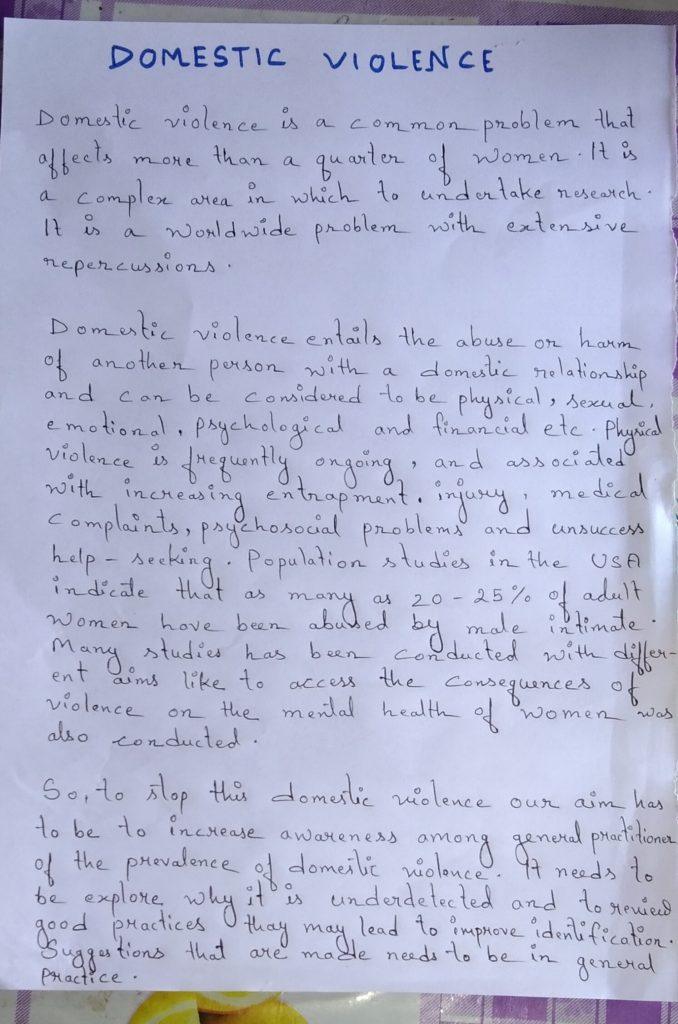 DOMESTIC VIOLENCE
Domestic violence is a common problem that
affects more than a quarter of women. It is
a complex area in which to undertake research.
It is a worldwide problem with extensive
repercussions.
Domestic violence entails the abuse or harm
of another person with a domestic relationship
and can be considered to be physical, sexual,
emotional, psychological and financial etc. Physical
violence is frequently ongoing, and associated
with increasing entrapment, injury, medical
complaints, psychosocial problems and unsuccess
help - seeking. Population studies in the USA
indicate that as many as 20 - 25% of adult
women have been abused by male intimate.
Many studies has been conducted with differ-
ent aims like to access the consequences of
violence on the mental health of women was
also conducted.
So, to stop this domestic violence our aim has
to be to increase awareness among general practitioner
of the prevalence of domestic violence. It needs to
be explore why it is underdetected and to review
good practices thay may lead to improve identification.
Suggestions that are made needs to be in general
practice.